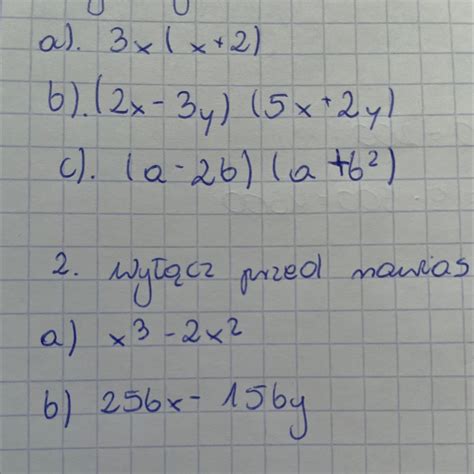 a). 3x(x+2)
b). (2x-3y)(5x+2y)
c). (a-2b)(a+b²)
2. Wyłącz przed nawias
a) x³-2x²
b) 25bx-15by